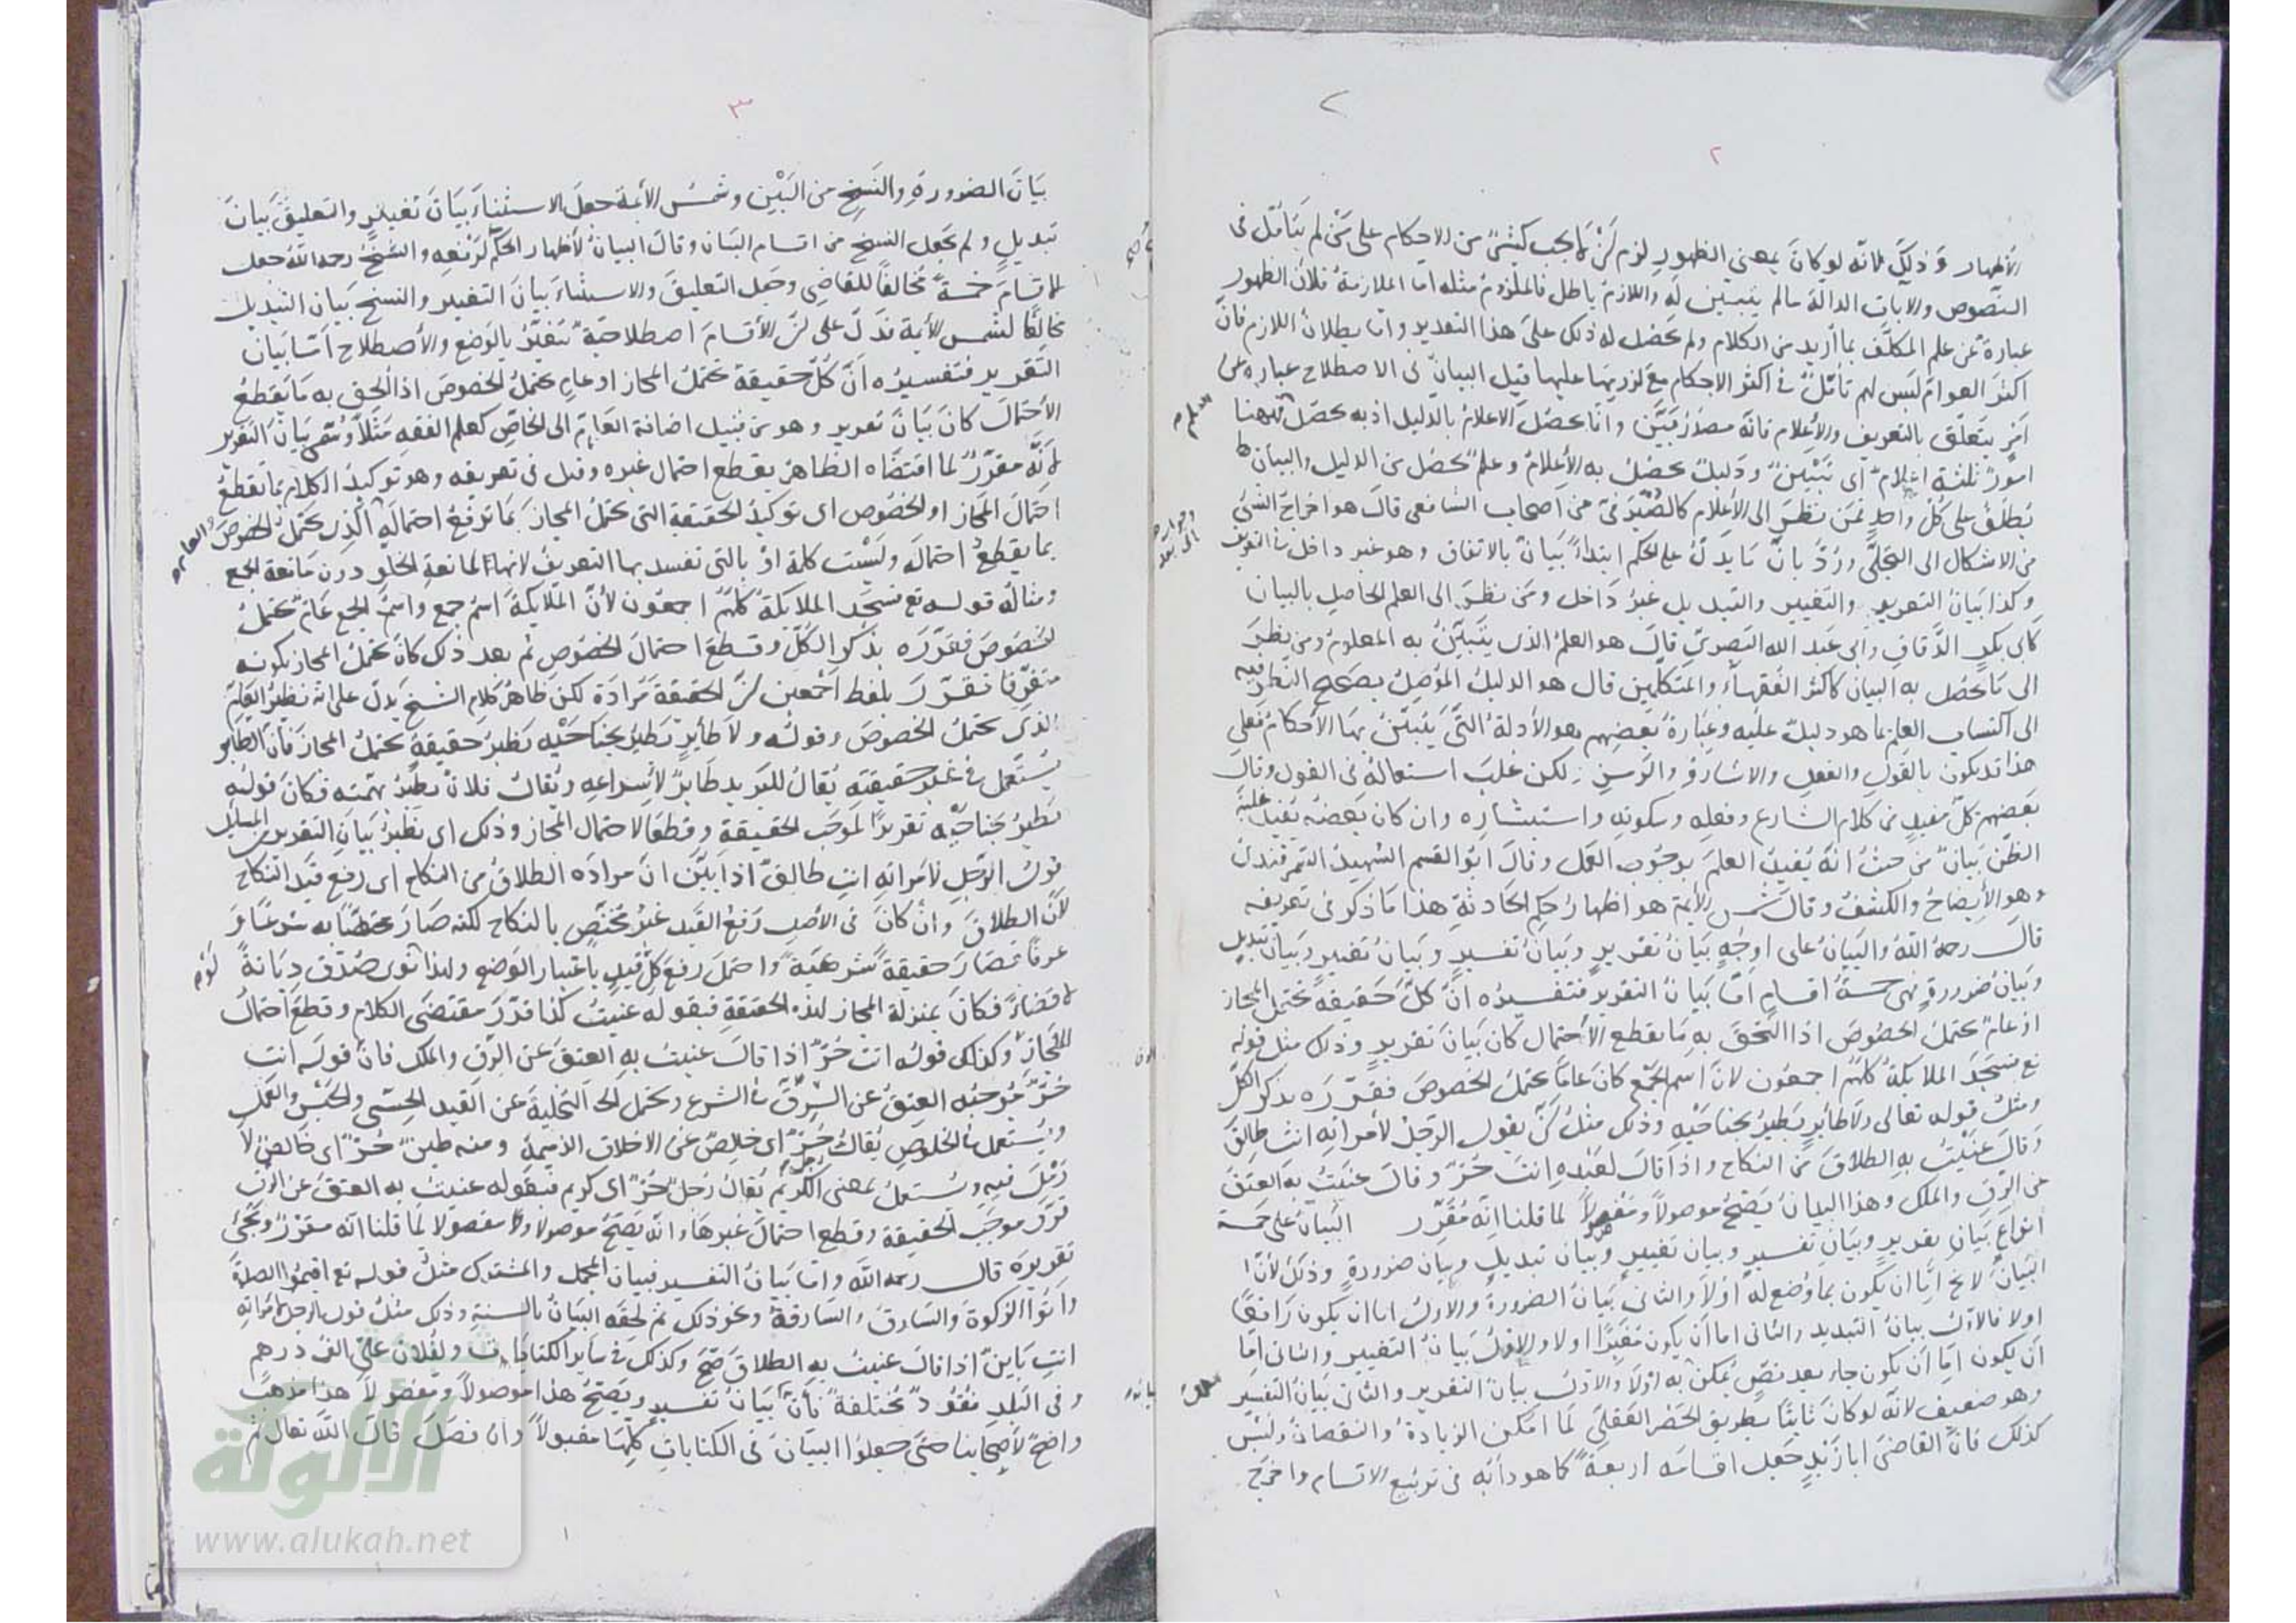 ٢
٢
الأظهار وذلك لانه لو كان بمعنى الظهور لزم ان لا يجب كثير من الاحكام على من لم يتأمل فى
النصوص والايات الدالة ما لم يتبين له واللازم باطل فالملزوم مثله اما الملازمة فلان الظهور
عبارة عن علم المكلف بما أريد من الكلام ولم يحصل له ذلك على هذا التقدير واما بطلان اللازم فان
اكثر العوام ليس لهم تأمل فى اكثر الاحكام مع لزومها عليها قيل البيان فى الاصطلاح عبارة عن
امر يتعلق بالتعريف والأعلام فانه مصدر بين وانما يحصل الاعلام بالدليل اذ به يحصل العلم فههنا
امور ثلثة اعلام اى تبيين ودليل يحصل به الأعلام وعلم يحصل من الدليل والبيان
يطلق على كل واحد فمن نظر الى الأعلام كالصيرفى من اصحاب الشافعى قال هو اخراج الشئ
من الاشكال الى التجلى ورد بان ما يدل على الحكم ابتداء بيان بالاتفاق وهو غير داخل فى التعريف
وكذا بيان التقرير والتغيير والتبديل غير داخل ومن نظر الى العلم الحاصل بالبيان
كأبى بكر الدقاق وابى عبد الله البصرى قال هو العلم الذى يتبين به المعلوم ومن نظر
الى ما يحصل به البيان كاكثر الفقهاء والمتكلمين قال هو الدليل الموصل بصحيح النظر فيه
الى اكتساب العلم بما هو دليل عليه وعبارة بعضهم هو الأدلة التى يتبين بها الأحكام فعلى
هذا قد يكون بالقول والفعل والاشارة والرمز لكن غلب استعماله فى القول وقال
بعضهم كل مفيد من كلام الشارع وفعله وسكوته واستبشاره وان كان بعضه يفيد غلبة
الظن بيان من حيث انه يفيد العلم بوجوب العمل وقال ابو القسم الشهيد السمرقندى
هو الأيضاح والكشف وقال شمس الأئمة هو اظهار حكم الحادثة هذا ما ذكر فى تعريفه
قال رحمه الله والبيان على اوجه بيان تقرير وبيان تفسير وبيان تغيير وبيان تبديل
وبيان ضرورة فهى خمسة اقسام اما بيان التقرير فتفسيره ان كل حقيقة تحتمل المجاز
او عام يحتمل الخصوص اذا التحق به ما يقطع الأحتمال كان بيان تقرير وذلك مثل قوله
تع فسجد الملايكة كلهم اجمعون لان اسم الجمع كان عاما يحتمل الخصوص فقرره بذكر الكل
ومثل قوله تعالى ولا طائر يطير بجناحيه وذلك مثل ان يقول الرجل لأمراته انت طالق
وقال عنيت به الطلاق من النكاح واذا قال لعبده انت حر وقال عنيت به العتق
عن الرق والملك وهذا البيان يصح موصولا ومفصولا لما قلنا انه مقرر البيان على خمسة
انواع بيان تقرير وبيان تفسير وبيان تغيير وبيان تبديل وبيان ضرورة وذلك لأن
البيان لا يخ اما ان يكون بما وضع له اولا والثانى بيان الضرورة والاول اما ان يكون رافعا
اولا فالأول بيان التبديل والثانى اما ان يكون مغيرا اولا والاول بيان التغيير والثانى اما
ان يكون جار بعد نص يمكن به اولا والاول بيان التقرير والثانى بيان التفسير
وهو ضعيف لانه لو كان ثابتا بطريق الحصر العقلى لما امكن الزيادة والنقصان وليس
كذلك فان القاضى ابا زيد جعل اقسامه اربعة كما هو دأبه فى تربيع الاقسام واخرج
٣
بيان الضرورة والنسخ من البين وشمس الأئمة جعل الاستثناء بيان تغيير والتعليق بيان
تبديل ولم يجعل النسخ من اقسام البيان وقال البيان لأظهار الحكم لا لرفعه والشيخ رحمه الله جعل
الاقسام خمسة مخالفا للقاضى وجعل التعليق والاستثناء بيان التغيير والنسخ بيان التبديل
مخالفا لشمس الأئمة فدل على ان الأقسام اصطلاحية تتغير بالوضع والأصطلاح اما بيان
التقرير فتفسيره ان كل حقيقة تحتمل المجاز او عام يحتمل الخصوص اذا الحق به ما يقطع
الأحتمال كان بيان تقرير وهو من قبيل اضافة العام الى الخاص كعلم الفقه مثلا وسمى بيان التقرير
لانه مقرر لما اقتضاه الظاهر بقطع احتمال غيره وقيل فى تعريفه وهو توكيد الكلام بما يقطع
احتمال المجاز او الخصوص اى توكيد الحقيقة التى تحتمل المجاز بما ترفع احتماله والعام الذى يحتمل الخصوص
بما يقطع احتماله وليست كلمة او بالتى تفسد بها التعريف لانها لمانعة الخلو دون مانعة الجمع
ومثاله قوله تع فسجد الملايكة كلهم اجمعون لأن الملايكة اسم جمع واسم الجمع عام يحتمل
الخصوص فقرره بذكر الكل وقطع احتمال الخصوص ثم بعد ذلك كان يحتمل المجاز بكونه
متفرقا فقرر بلفظ اجمعين ان الحقيقة مرادة لكن ظاهر كلام الشيخ يدل على انه نظير العام
الذى يحتمل الخصوص وقوله ولا طائر يطير بجناحيه نظير حقيقة تحتمل المجاز فان الطاير
يستعمل فى غير حقيقته يقال للبريد طاير لأسراعه ويقال فلان يطير بهمته فكان قوله
يطير بجناحيه تقريرا لموجب الحقيقة وقطعا لاحتمال المجاز وذلك اى نظير بيان التقرير من المسايل
قول الرجل لأمراته انت طالق اذا بين ان مراده الطلاق من النكاح اى رفع قيد النكاح
لأن الطلاق وان كان فى الأصل رفع القيد غير مختص بالنكاح لكنه صار مختصا به شرعا و
عرفا فصار حقيقة شرعية واحتمل رفع كل قيد باعتبار الوضع ولهذا لو نوى صدق ديانة
لا قضاء فكان بمنزلة المجاز لهذه الحقيقة فبقوله عنيت كذا قرر مقتضى الكلام وقطع احتمال
المجاز وكذلك قوله انت حر اذا قال عنيت به العتق عن الرق والملك فان قوله انت
حر موجبه العتق عن الرق فى الشرع ويحتمل التخلية عن القيد الحسى والحبس والعمل
ويستعمل فى الخلوص يقال حر اى خالص عن الاخلاق الذميمة ومنه طين حر اى خالص لا
رمل فيه ويستعمل بمعنى الكريم يقال رجل حر اى كريم فبقوله عنيت به العتق عن الرق
قرر موجب الحقيقة وقطع احتمال غيرها وانه يصح موصولا ومفصولا لما قلنا انه مقرر
تقريره قال رحمه الله واما بيان التفسير فبيان المجمل والمشترك مثل قوله تع اقيموا الصلوة
واتوا الزكوة والسارق والسارقة ونحو ذلك ثم لحقه البيان بالسنة وذلك مثل قول الرجل لامراته
انت باين اذا قال عنيت به الطلاق صح وكذلك فى ساير الكنايات ولفلان على الف درهم
وفى البلد نقود مختلفة فان بيانه بيان تفسير ويصح هذا موصولا ومفصولا هذا مذهب
واضح لأصحابنا حتى جعلوا البيان فى الكنايات كلها مقبولا وان فصل قال الله تعالى ثم
الألوكة
www.alukah.net